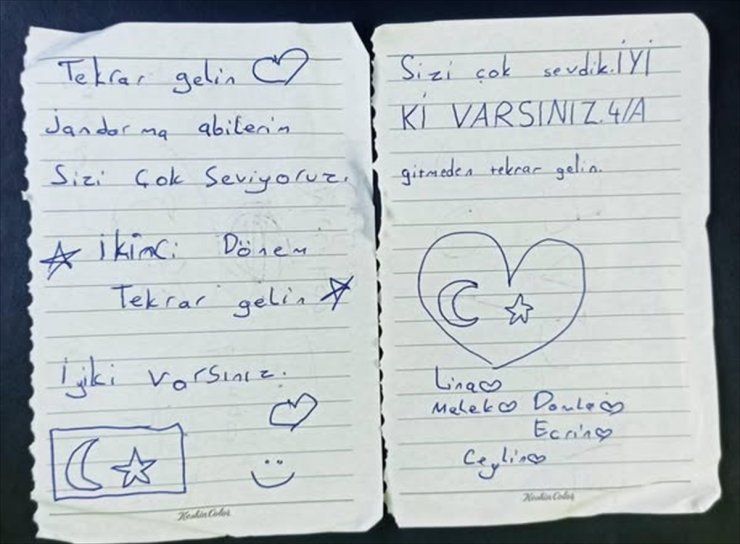 Tekrar gelin
Jandarma abilerim
Sizi Çok Seviyoruz.
İkinci Dönem
Tekrar gelin
İyiki varsınız.
KeskinColor
Sizi çok sevdik.İYİ
Kİ VARSINIZ.4/A
gitmeden tekrar gelin.
Lina
Melek
Ecrin
Ceylin
KeskinColor